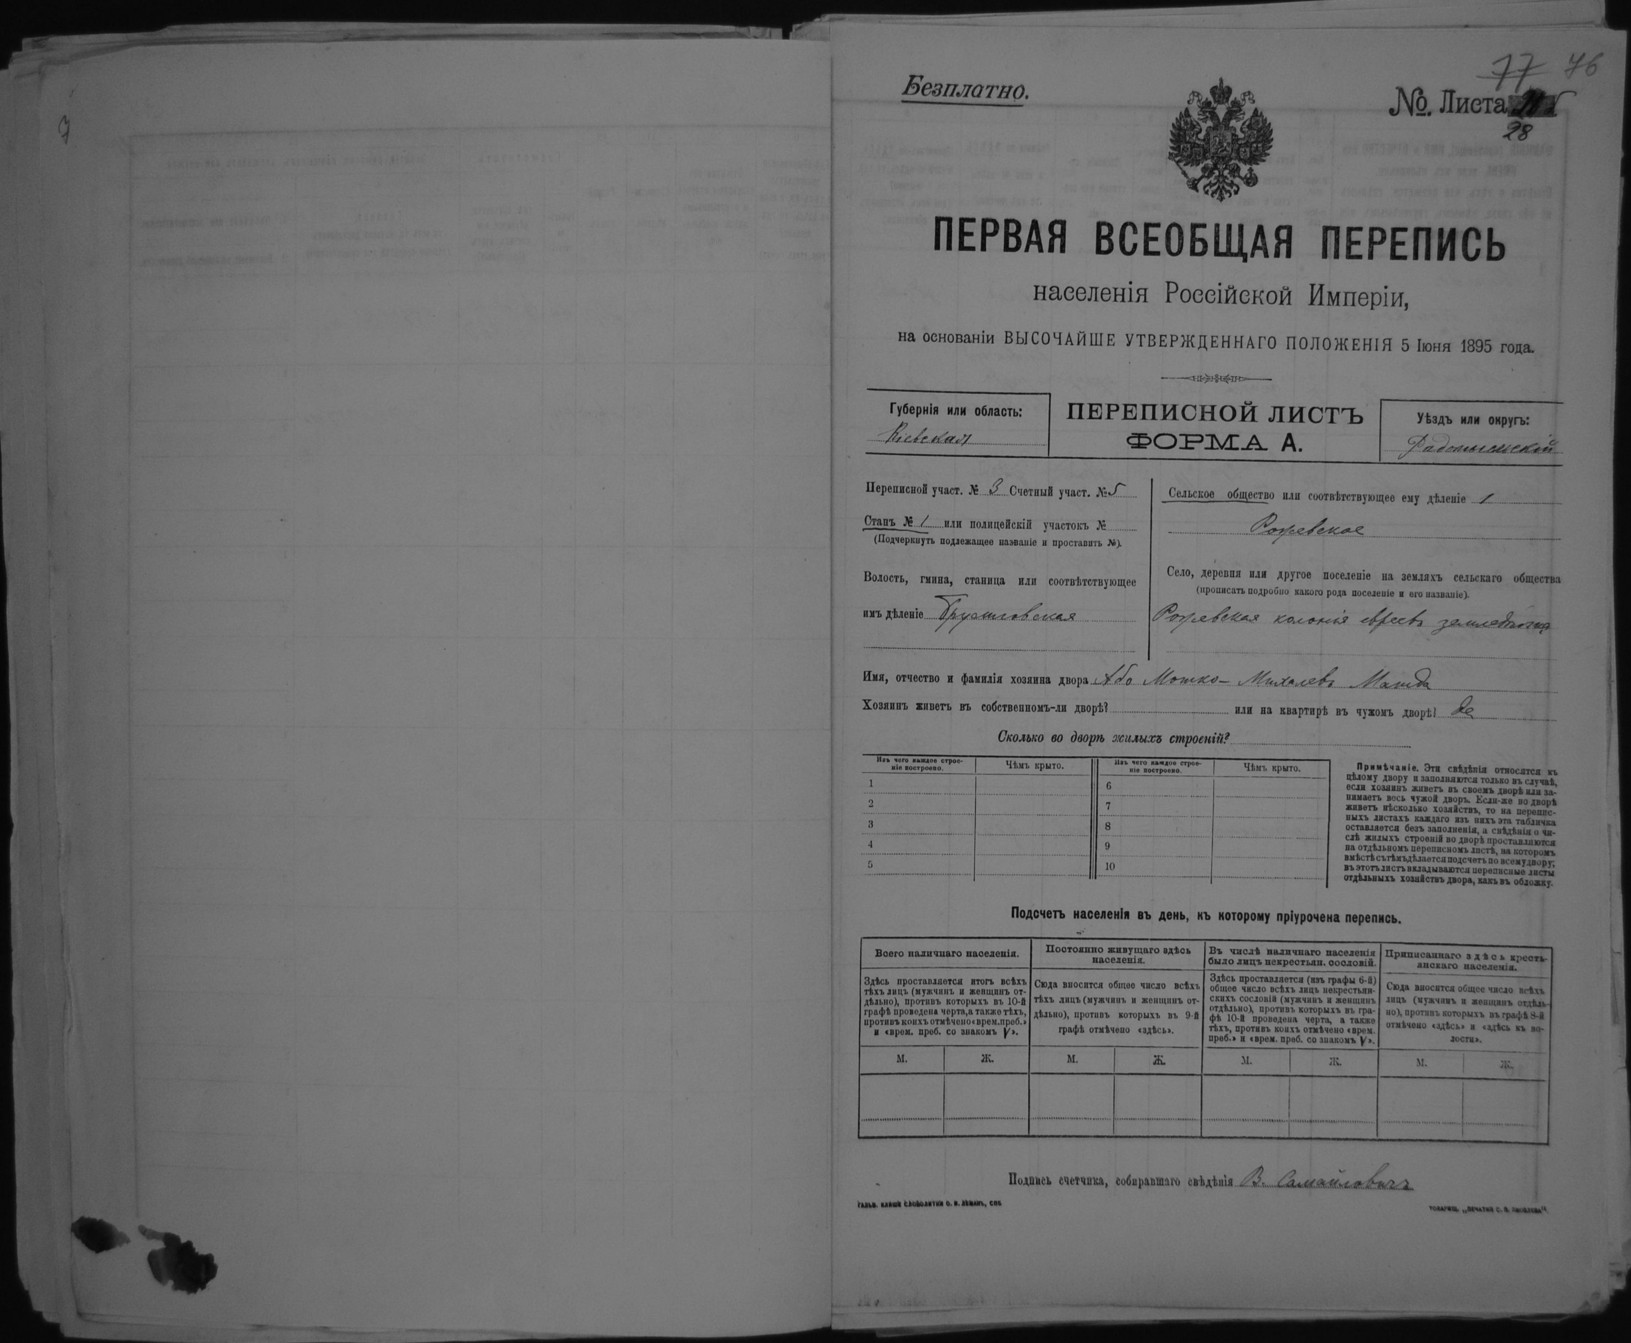 77 76
Безплатно.
№ Листа
28
ПЕРВАЯ ВСЕОБЩАЯ ПЕРЕПИСЬ
населенія Россійской Имперіи,
на основаніи ВЫСОЧАЙШЕ УТВЕРЖДЕННАГО ПОЛОЖЕНІЯ 5 Іюня 1895 года.
Губернія или область:
Кіевская
ПЕРЕПИСНОЙ ЛИСТЪ
ФОРМА А.
Уѣздъ или округъ:
Радомысльскій
Переписной участ. № 3 Счетный участ. № 5
Станъ № 1 или полицейскій участокъ №
(Подчеркнуть подлежащее названіе и проставить №).
Волость, гмина, станица или соотвѣтствующее
имъ дѣленіе Брусиловская
Сельское общество или соотвѣтствующее ему дѣленіе 1
Рожевское
Село, деревня или другое поселеніе на земляхъ сельскаго общества
(прописать подробно какого рода поселеніе и его названіе).
Рожевская колонія евреевъ
Имя, отчество и фамилія хозяина двора Або Мошко- Михелевъ
Хозяинъ живетъ въ собственномъ-ли дворѣ? или на квартирѣ въ чужомъ дворѣ? да
Сколько во дворѣ жилыхъ строеній?
Изъ чего каждое строе-
ніе построено.
Чѣмъ крыто.
Изъ чего каждое строе-
ніе построено.
Чѣмъ крыто.
1
2
3
4
5
6
7
8
9
10
Примѣчаніе. Эти свѣдѣнія относятся къ
цѣлому двору и заполняются только въ случаѣ,
если хозяинъ живетъ въ своемъ дворѣ или за-
нимаетъ весь чужой дворъ. Если-же во дворѣ
живетъ нѣсколько хозяйствъ, то на перепис-
ныхъ листахъ каждаго изъ нихъ эта табличка
оставляется безъ заполненія, а свѣдѣнія о чи-
слѣ жилыхъ строеній во дворѣ проставляются
на отдѣльномъ переписномъ листѣ, на которомъ
вмѣстѣ съ тѣмъ дѣлается подсчетъ по всему двору;
въ этотъ листъ вкладываются переписные листы
отдѣльныхъ хозяйствъ двора, какъ въ обложку.
Подсчетъ населенія въ день, къ которому пріурочена перепись.
Всего наличнаго населенія.
Здѣсь проставляется итогъ всѣхъ
тѣхъ лицъ (мужчинъ и женщинъ от-
дѣльно), противъ которыхъ въ 10-й
графѣ проведена черта, а также тѣхъ,
противъ коихъ отмѣчено «врем. преб.»
и «врем. преб. со знакомъ V».
М. Ж.
Постоянно живущаго здѣсь
населенія.
Сюда вносится общее число всѣхъ
тѣхъ лицъ (мужчинъ и женщинъ от-
дѣльно), противъ которыхъ въ 9-й
графѣ отмѣчено «здѣсь».
М. Ж.
Въ числѣ наличнаго населенія
было лицъ некрестьян. сословій.
Здѣсь проставляется (изъ графы 6-й)
общее число всѣхъ лицъ некрестьян-
скихъ сословій (мужчинъ и женщинъ
отдѣльно), противъ которыхъ въ гра-
фѣ 10-й проведена черта, а также
тѣхъ, противъ коихъ отмѣчено «врем.
преб.» и «врем. преб. со знакомъ V».
М. Ж.
Приписаннаго здѣсь кресть-
янскаго населенія.
Сюда вносится общее число всѣхъ
лицъ (мужчинъ и женщинъ отдѣль-
но), противъ которыхъ въ графѣ 8-й
отмѣчено «здѣсь» и «здѣсь въ во-
лости».
М. Ж.
Подпись счетчика, собиравшаго свѣдѣнія В. Самойловичъ